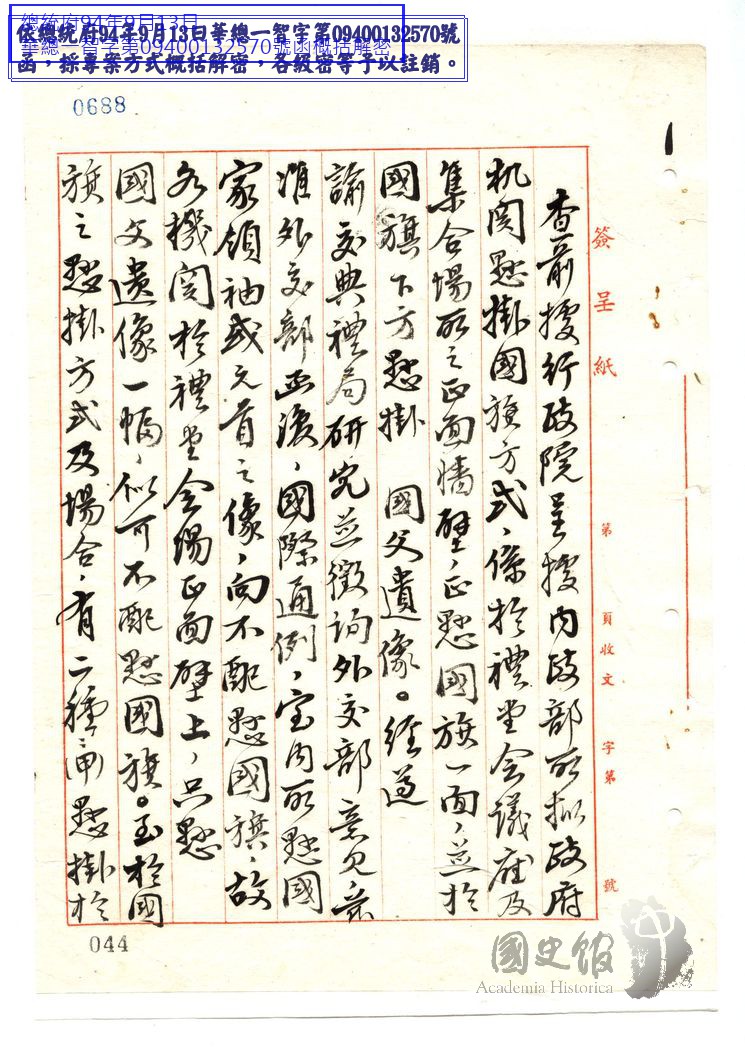 總統府94年9月13日
華總一智字第09400132570號函概括解密
依總統府94年9月13日華總一智字第09400132570號
函，採專案方式概括解密，各級密等予以註銷。
0688
簽呈紙
第 頁收文 字第 號
查前據行政院呈據內政部所擬政府
机関懸掛國旗方式、係於禮堂会議座及
集合場所之正面墻壁、正懸國旗一面、並於
國旗下方懸掛 國父遺像。經遵
諭交典禮局研究並徵詢外交部意見、
准外交部函復、國際通例、室內所懸國
家領袖或元首之像、向不配懸國旗、故
各機関於禮堂会場正面壁上、只懸
國父遺像一幅、似可不配懸國旗。至於國
旗之懸掛方式及場合、有二種：一懸掛於
044
國史館
Academia Historica